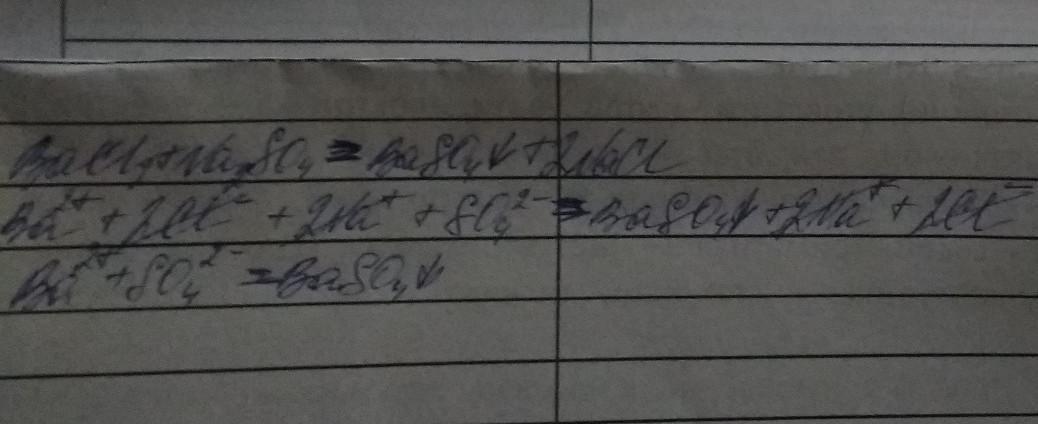 BaCl₂+Na₂SO₄=BaSO₄↓+2NaCl
Ba²⁺+2Cl⁻+2Na⁺+SO₄²⁻=BaSO₄↓+2Na⁺+2Cl⁻
Ba²⁺+SO₄²⁻=BaSO₄↓